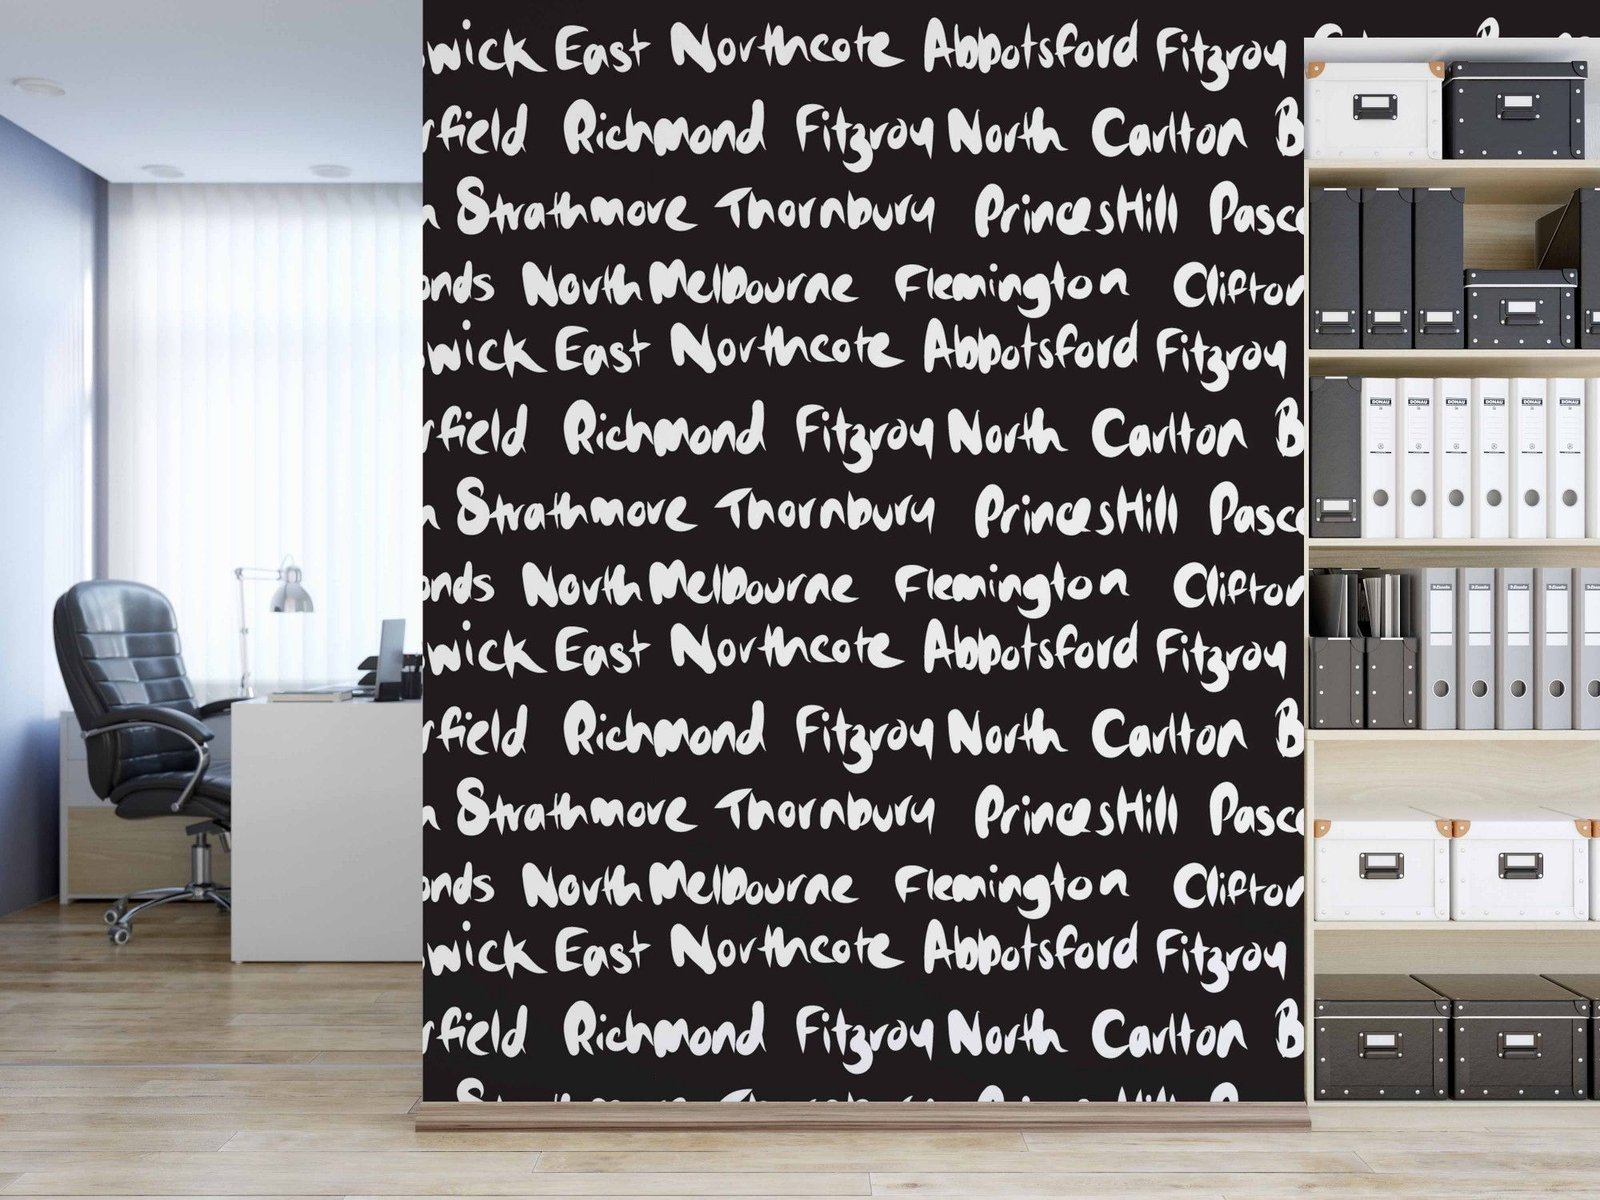 wick East Northcote Abbotsford Fitzroy
rfield Richmond Fitzroy North Carlton B
n Strathmore Thornbury Princes Hill Pasco
onds North Melbourne Flemington Clifton
wick East Northcote Abbotsford Fitzroy
rfield Richmond Fitzroy North Carlton B
n Strathmore Thornbury Princes Hill Pasco
onds North Melbourne Flemington Clifton
wick East Northcote Abbotsford Fitzroy
rfield Richmond Fitzroy North Carlton B
n Strathmore Thornbury Princes Hill Pasco
onds North Melbourne Flemington Clifton
wick East Northcote Abbotsford Fitzroy
rfield Richmond Fitzroy North Carlton B
DONAU DONAU DONAU DONAU DONAU DONAU